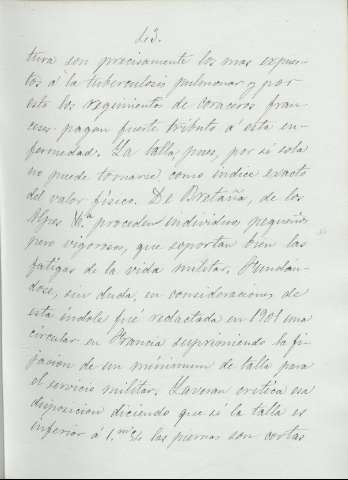 63.
tura son precisamente los mas expues-
tos á la tuberculosis pulmonar y por
esto los regimientos de coraceros fran-
ceses pagan fuerte tributo á esta en-
fermedad. La talla pues, por sí sola
no puede tomarse como índice exacto
del valor físico. De Bretaña, de los
Alpes &.ª proceden individuos pequeños
pero vigorosos, que soportan bien las
fatigas de la vida militar. Fundán-
dose, sin duda, en consideraciones de
esta índole fué redactada en 1901 una
circular en Francia suprimiendo la fi-
jacion de un mínimum de talla para
el servicio militar. Laveran critica esa
disposicion diciendo que si la talla es
inferior á 1.m las piernas son cortas